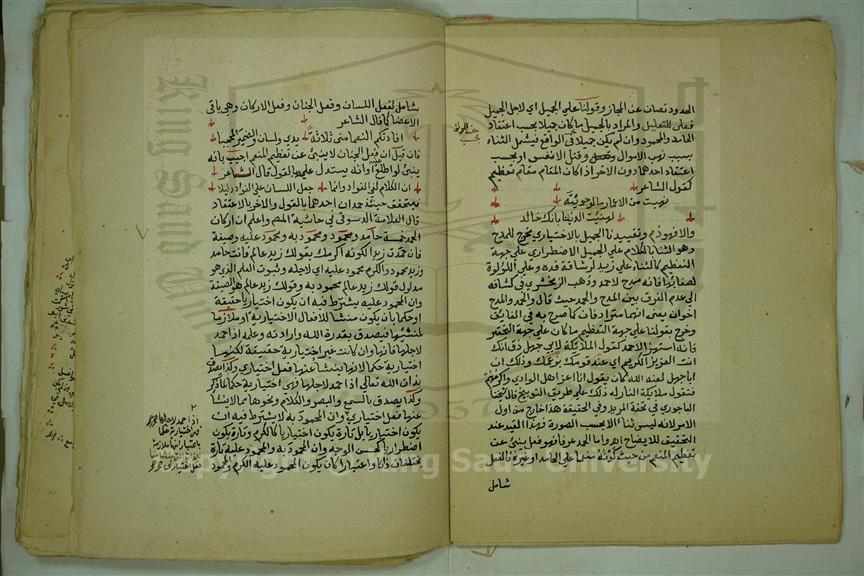 الحدود تصان عن المجاز وقولنا على الجميل اي لاجل الجميل
فعلى للتعليل والمراد بالجميل ما كان جميلا بحسب اعتقاد
الحامد والمحمود وان لم يكن جميلا في الواقع فيشمل الثناء
بسبب نهب الاموال وقتل الانفس او بحسب
اعتقاد احدهما دون الاخر اذا كان المقام مقام تعظيم
كقول الشاعر
نهبت من الاعمار ما لو حويته
لهنيت الدنيا بانك خالد
والا فهو ذم وتقييدنا الجميل بالاختياري مخرج للمدح
وهو الثنا بالكلام على الجميل الاضطراري على جهة
التعظيم كالثناء على زيد لرشاقة قده وعلى اللؤلؤة
لصفائها فانه مدح لا حمد وذهب الزمخشري في كشافه
الى عدم الفرق بين المدح والحمد حيث قال والحمد والمدح
اخوان يعني انهما مترادفان كما صرح به في الفايق
وخرج بقولنا على جهة التعظيم ما كان على جهة التحقير
فانه استهزا لا حمد كقول الملائكة لابي جهل ذق انك
انت العزيز الكريم اي عند قومك بزعمك وذلك ان
ابا جهل لعنه الله كان يقول انا اعز اهل الوادي واكرمهم
فتقول ملائكة النار له ذلك على طريق التوبيخ قال شيخنا
الباجوري في تحفة المريد وفي الحقيقة هذا خارج من اول
الامر لانه ليس ثناء الا بحسب الصورة فهذا القيد عند
التحقيق للايضاح اهـ واما الحمد عرفا فهو فعل ينبئ عن
تعظيم المنعم من حيث كونه منعما على الحامد او غيره فالفعل
شامل
شامل لفعل اللسان وفعل الجنان وفعل الاركان وهي باقي
الاعضا كما قال الشاعر
افادتكم النعما مني ثلاثة يدي ولساني والضمير المحجبا
فان قيل ان فعل الجنان لا ينبئ عن تعظيم المنعم اجيب بانه
ينبئ لو اطلع او انه يستدل عليه بالقول قال الشاعر
ان الكلام لفي الفواد وانما جعل اللسان على الفواد دليلا
فيتحقق حينئذ حمدان احدهما بالقول والاخر بالاعتقاد
قال العلامة الدسوقي في حاشية واعلم ان اركان
الحمد خمسة حامد ومحمود ومحمود به ومحمود عليه وصيغة
فان حمدت زيدا لكونه اكرمك بقولك زيد عالم فانت حامد
وزيد محمود والكرم محمود عليه اي لاجله وثبوت العلم الذي هو
مدلول قولك زيد عالم محمود به وقولك زيد عالم هو الصيغة
وان المحمود عليه يشترط فيه ان يكون اختياريا حقيقة
او حكما بان يكون منشئا للافعال الاختيارية او ملازما
لمنشئها فيصدق بقدرة الله وارادته وعلمه اذا حمد
لاجلها فانها وان كانت غير اختيارية حقيقة لكنها
اختيارية حكما لانها ينشا عنها فعل اختياري
بذات الله تعالى اذا حمد لاجلها فهي اختيارية حكما لما ذكر
وكذا يصدق بالسمع والبصر والكلام ونحوها مما لا ينشا
عنها فعل اختياري وان المحمود به لا يشترط فيه ان
يكون اختياريا بل تارة يكون اختياريا كالكرم وتارة يكون
اضطراريا كحسن الوجه وان المحمود به والمحمود عليه تارة
يختلفان ذاتا واعتبارا كان يكون المحمود عليه الكرم والمحمود